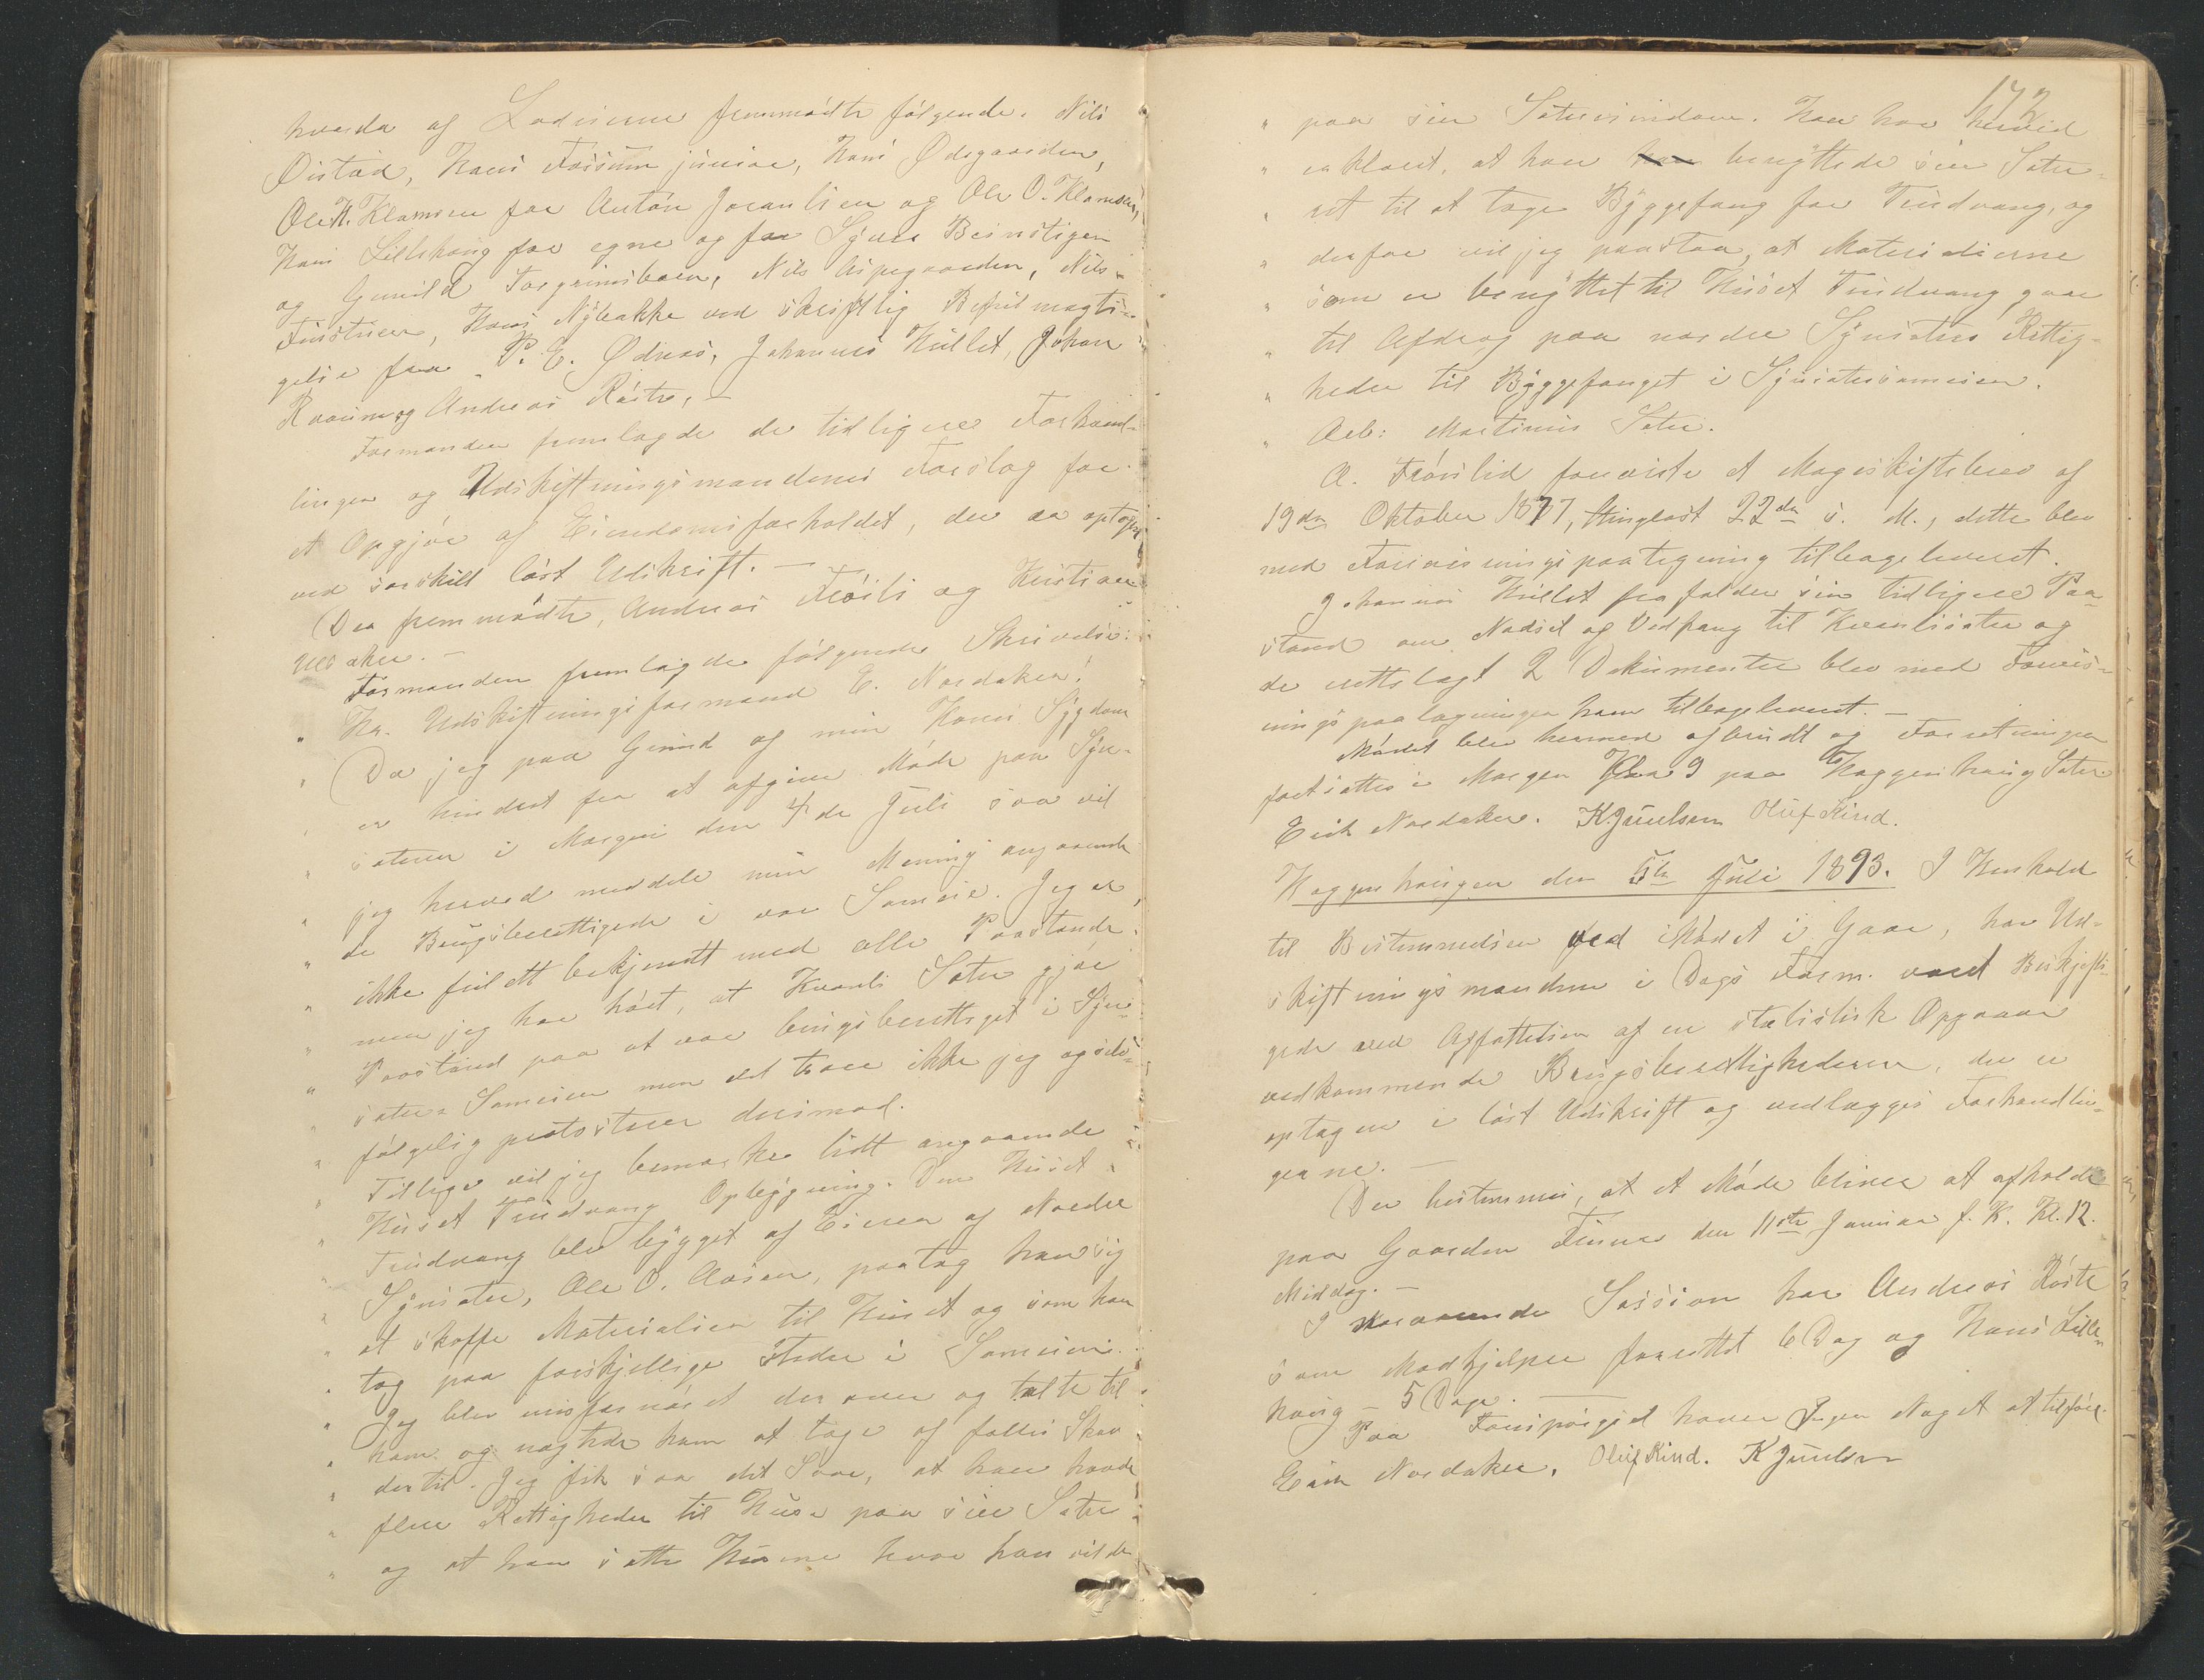 hvorda af Lodeierne fremmødte følgende. Nils
Øistad, Hans Fossum junior, Hans Ødegaarden,
Ole H. Klomsen for Anton Joranlien og Ole O. Klomsen,
Hans Lillehaug for egne og for Syver Beinstigen
og Gunild Torgrimsbøen, Nils Aspegaarden, Nils
Finstuen, Hans Nybakke ved skriftlig Befuldmægti-
gelse fra P. E. Ødnæs, Johannes Hullet, Johan
Kraum og Andreas Røste, —
Formanden fremlagde de tidligere Forhand-
linger og Udskiftningsmandenes Forslag for
et Opgjør af Eiendomsforholdet, der er optagen
ved særskilt løst Udskrift. —
Der fremmødte, Andreas Frøsli og Kristian
Ulsaker. —
Formanden fremlagde følgende Skrivelse:
" Hr. Udskiftningsformand E. Nordaker!
" Da jeg paa Grund af min Kones Sygdom
" er hindret fra at afgive Møde paa Syn-
" sæteren i Morgen den 4de Juli saa vil
" jeg herved meddele min Mening angaaende
" de Brugsberettigede i vor Sameie. Jeg er
" ikke fuldt bekjendt med alle Paastande
" men jeg har hørt, at Kvanli Sæter gjør
" Paastand paa at være brugsberettiget i Syn-
" sæter Sameien men det troer ikke jeg og
" følgelig protosterer derimod.
" Tillige vil jeg bemærke lidt angaaende
" Huset Trudvang Opbygning. Den Huset
" Trudvang blev bygget af Eieren af Nordre
" Synsæter, Ole O. Aasen, paatog han sig
" at skaffe Materialier til Huset og som han
" tog paa forskjellige Steder i Sameiet.
" Jeg blev misfornøiet der over og talte til
" ham og nægtede ham at tage af fælles Skov
" dertil. Jeg fik saa det Svar, at han havde
" flere Rettigheder til Huse paa sin Sæter
" og at han satte Husene hvor han vilde
172
" paa sin Sætereiendom. Han har herved
" erklæret, at han har benyttede sin Sæter-
" ret til at tage Byggefang for Trudvang, og
" derfor vil jeg paastaa, at Materialierne
" som er benyttet til Huset Trudvang gaar
" til Afdrag paa nordre Synsæters Rettig-
" heder til Byggefanget i Synsætersameien.
" Ærb: Martinus Sæter.
A. Frøslid foreviste et Mageskiftebrev af
19de Oktober 1877, thinglæst 22de s. M., dette blev
med Forevisningspaategning tilbageleveret.
Johannes Hullet frafalder sin tidligere Paa-
stand om Nødset og Vedfang til Kvanlisæter og
de rettelagt 2 Dokumenter blev med Forevis-
ningspaategninger ham tilbageleveret. —
Mødet blev hermed afbrudt og Forretningen
fortsættes i Morgen Kl. 9 paa Haggenhaug Sæter.
Erik Nordaker. K Juulsen Oluf Kind.
Haggenhaugen den 5te Juli 1893. I Henhold
til Bestemmelsen ved Mødet i Gaar, har Ud-
skiftningsmændene i Dags Form. været Beskjæfti-
gede ved Affattelsen af en statistisk Opgaave
vedkommende Brugsberettighederne, der er
optagen i løst Udskrift og vedlægges Forhandlin-
gerne. —
Der bestemmes, at et Møde bliver at afholde
paa Gaarden Finna den 11te Januar f. K. Kl. 12.
Middag. —
I nærværende Session har Andreas Røste
som Medhjelper forrettet 6 Dag og Hans Lille-
haug — 5 Dage. —
Paa Forespørgsel havde Ingen Noget at tilføie.
Erik Nordaker. Oluf Kind. K Juulsen